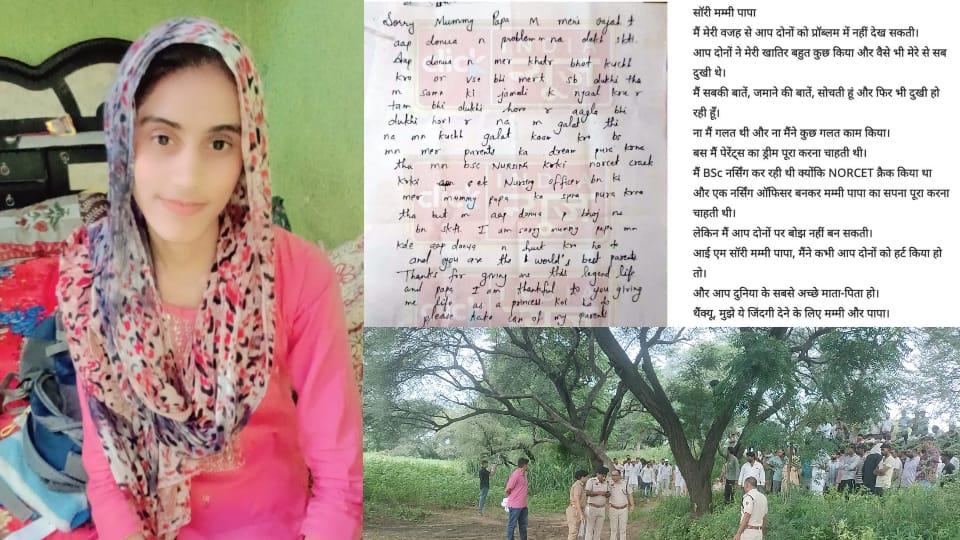 Sorry Mummy Papa M meri vajah
aap donua n problem m na dekh skti
Aap donua n mer khatr bhot kuchh
kro or vse bhi mer t sb dukhi tha
m sama ki jamadi k r
tam bhi dukhi hor r aagla bhi
dukhi hori r na m galat thi
na mn kuchh galat kaam kro bs
mn mer parents ka dream pura krna
tha mn bsc NURSING krki norcet crack
krki aan ek Nursing officer bn ki
mere mummy papa ka sapna pura krna
tha but m aap donua p bhoj na
bn skti. I am sorry mummy papa mn
kde aap donua n hurt kro ho t
and you are the world's best parents
Thanks for giving me this legend life
and papa I am thankful to you giving
me life as a princess
please take care of my parent
INDIA
click
सॉरी मम्मी पापा
मैं मेरी वजह से आप दोनों को प्रॉब्लम में नहीं देख सकती।
आप दोनों ने मेरी खातिर बहुत कुछ किया और वैसे भी मेरे से सब
दुखी थे।
मैं सबकी बातें, जमाने की बातें, सोचती हूं और फिर भी दुखी हो
रही हूँ।
ना मैं गलत थी और ना मैंने कुछ गलत काम किया।
बस मैं पेरेंट्स का ड्रीम पूरा करना चाहती थी।
मैं BSc नर्सिंग कर रही थी क्योंकि NORCET क्रैक किया था
और एक नर्सिंग ऑफिसर बनकर मम्मी पापा का सपना पूरा करना
चाहती थी।
लेकिन मैं आप दोनों पर बोझ नहीं बन सकती।
आई एम सॉरी मम्मी पापा, मैंने कभी आप दोनों को हर्ट किया हो
तो।
और आप दुनिया के सबसे अच्छे माता-पिता हो।
थैंक्यू, मुझे ये जिंदगी देने के लिए मम्मी और पापा।